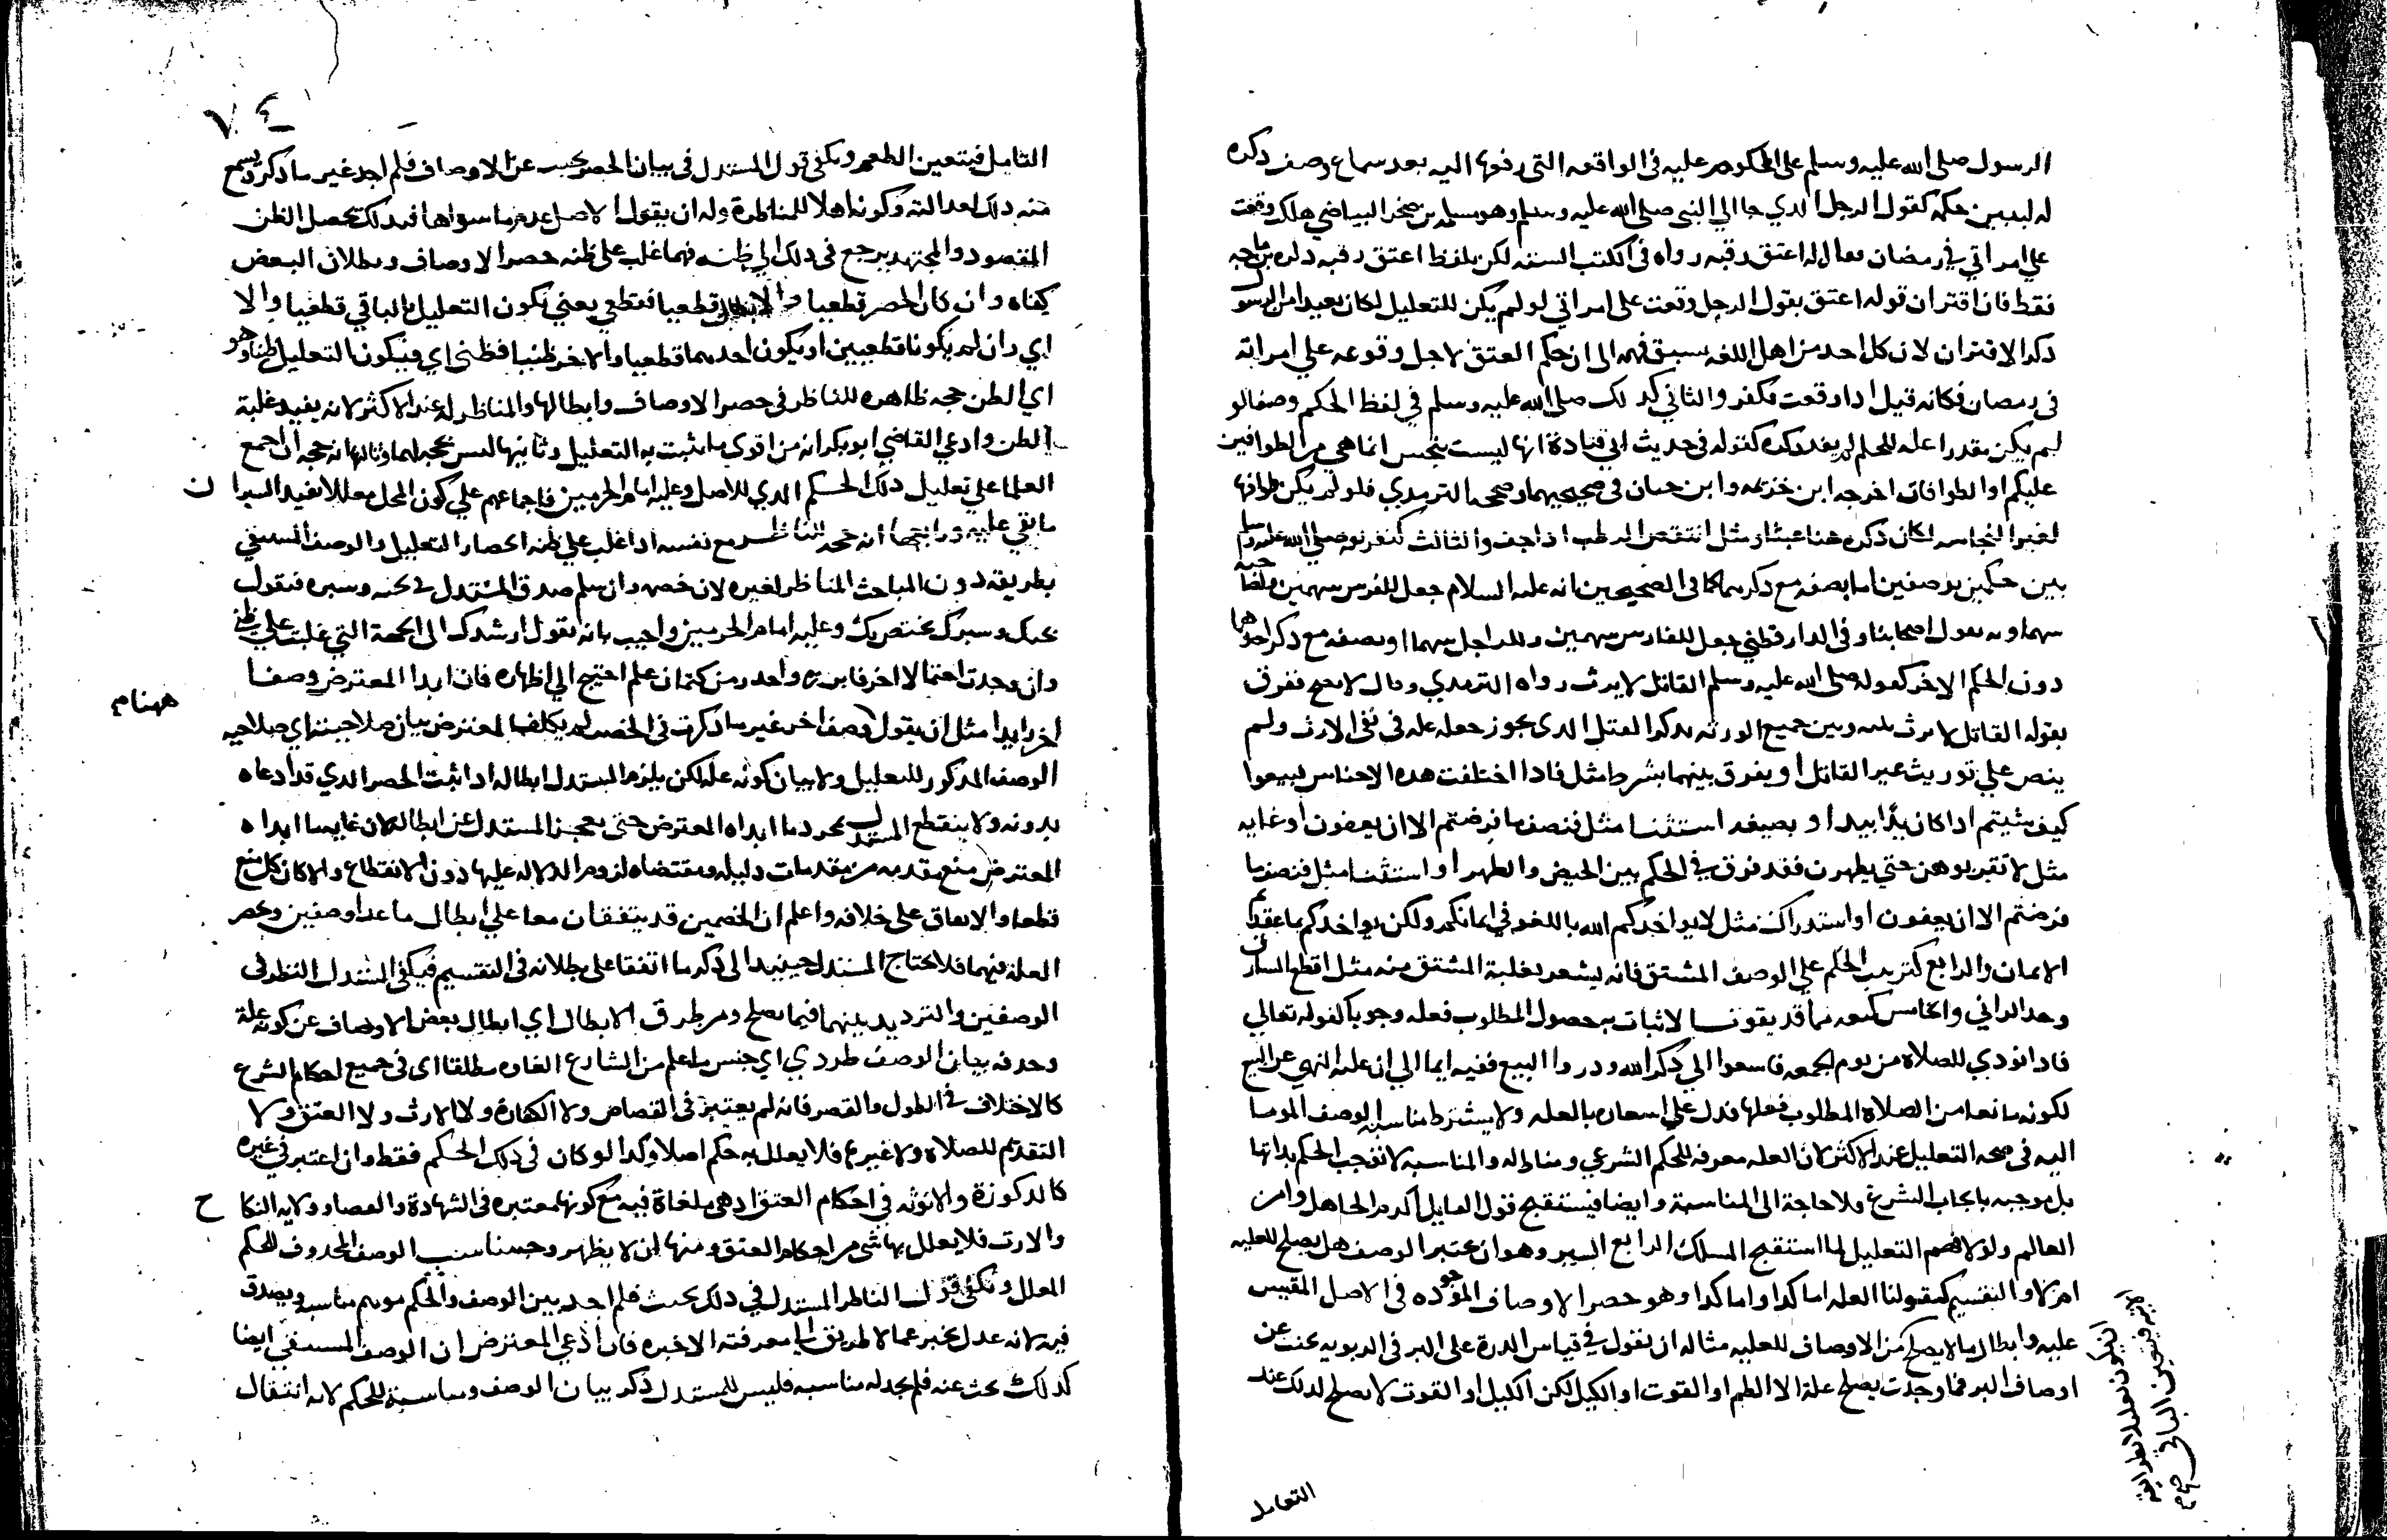 الرسول صلى الله عليه وسلم على المحكوم عليه في الواقعه التي رفعها اليه بعد سماع وصف ذكره
له ليبين حكمه كقول الرجل الدي جا الي النبي صلى الله عليه وسلم وهو سلمه بن صخر البياضي هلكت وقعت
علي امراتي في رمضان فعال له اعتق رقبه رواه في الكتب السته لكن بلفظ اعتق رقبه دكره بن ماجه
فقط فان اقتران قوله اعتق بقول الرجل وقعت على امراتي لو لم يكن للتعليل لكان بعيدا من الرسول
ذكر الاقتران لان كل احد من اهل اللغه يسبق فهمه الى ان حكم العتق لاجل وقوعه علي امراته
فى رمضان فكانه قيل ادا وقعت فكفر والثاني كدلك صلى الله عليه وسلم في لفظ الحكم وصفا لو
لم يكن مقدرا عله للحكم لم يفد دكره كقوله في حديث ابي قتادة انها ليست بنجس انما هي من الطوافين
عليكم او الطوافات اخرجه ابن خزيمه وابن حبان في صحيحيهما وصححه الترمدي فلو لم يكن طوافها
لغير النجاسه لكان ذكره هنا عبثا ومثل اينقص الرطب اذا جف والثالث كتفريقه صلى الله عليه وسلم
بين حكمين بوصفين اما بصفه مع دكرهما كما في الصحيحين انه عليه السلام جعل للفرس سهمين ولصاحبه
سهما وبه يقول اصحابنا وفي الدارقطني جعل للفارس سهمين وللراجل سهما او بصفه مع دكر احدهما
دون الحكم الاخر كقوله صلى الله عليه وسلم القاتل لا يرث رواه الترمدي وقال لا يصح ففرق
بقوله القاتل لا يرث بينه وبين جميع الورثه بدكر القتل الدى يجوز جعله عله في نفي الارث ولم
ينص علي توريث غير القاتل او يفرق بينهما بشرط مثل فادا اختلفت هده الاجناس فبيعوا
كيف شيتم ادا كان يدا بيد او بصيغه استثنا مثل فنصف ما فرضتم الا ان يعفون او غايه
مثل لا تقربوهن حتي يطهرن فقد فرق في الحكم بين الحيض والطهر او استثنا مثل فنصف ما
فرضتم الا ان يعفون او استدراك مثل لا يواخدكم الله باللغو في ايمانكم ولكن يواخدكم بما عقدتم
الايمان والرابع كترتيب الحكم علي الوصف المشتق فانه يشعر بعلية المشتق منه مثل اقطع السارق
وحد الزاني والخامس كمنعه مما قد يفوت الاثبات به حصول المطلوب فعله وجوبا كقوله تعالي
فادا نودي للصلاة من يوم الجمعه فاسعوا الي دكر الله ودروا البيع ففيه ايما الي ان عله النهي عن البيع
لكونه مانعا من الصلاة المطلوب فعلها فدل علي اشعاره بالعله ولا يشترط مناسبه الوصف الموما
اليه فى صحه التعليل عند الاكثر لان العله معرفه للحكم الشرعي ومناط له والمناسبه لا توجب الحكم بداتها
بل موجبه بايجاب الشرع فلا حاجة الى المناسبة وايضا فيستقبح قول القايل اكرم الجاهل واهن
العالم ولولا فهم التعليل لما استقبح المسلك الرابع السبر وهو ان يختبر الوصف هل يصلح للعليه
ام لا والتقسيم كقولنا العله اما كدا واما كدا وهو حصر الاوصاف الموجوده في الاصل المقيس
عليه وابطال ما لا يصلح من الاوصاف للعليه مثاله ان نقول في قياس الدرة على البر في الربويه بحثت عن
اوصاف البر فما وجدت يصلح علة الا الطعم او القوت او الكيل لكن الكيل او القوت لا يصلح لدلك عند
التامل
التامل فيتعين الطعم ويكفي قول المستدل في بيان الحصر بحثت عن الاوصاف فلم اجد غير ما دكر ويسمع
منه دلك لعدالته وكونه اهلا للمناظرة وله ان يقول الاصل عدم ما سواها فبدلك يحصل الظن
المقصود والمجتهد يرجع في دلك الي ظنه فمهما غلب على ظنه حصر الاوصاف وبطلان البعض
كفاه وان كان الحصر قطعيا والابطال قطعيا فقطعي يعني يكون التعليل بالباقي قطعيا والا
اي وان لم يكونا قطعيين او يكون احدهما قطعيا والاخر ظنيا فظني اي فيكون التعليل ظنيا وهو
اي الظن حجه ظاهره للناظر في حصر الاوصاف وابطالها والمناظر له عند الاكثر لانه يفيد غلبة
الظن وادعي القاضي ابو بكر انه من اقوى ما يثبت به التعليل وثانيها ليس بحجه لهما وثالثها انه حجه ان اجمع
العلما علي تعليل دلك الحكم الدي للاصل وعليه امام الحرمين فاجماعهم علي كون المحل معللا يفيد السبر ان
ما بقي عليه ورابعها انه حجه للناظر مع نفسه ادا غلب علي ظنه انحصار التعليل والوصف المستبقي
بطريقه دون المباحث المناظر لغيره لان خصمه وان سلم صدق المستدل في بحثه وسبره فيقول
بحثك وسبرك يختص بك وعليه امام الحرمين واجيب بانه يقول ارشدك الى الجهة التي غلبت علي ظني
وان وجدت احتمالا اخر فابرزه واحدر من كتمان علم احتيج الي اظهاره فان ابدا المعترض وصفا
ههنا م
اخر زايدا مثل ان يقول وصف اخر غير ما دكرت في الحصر لم يكلف المعترض بيان صلاحيته اي صلاحيه
الوصف المدكور للتعليل ولا بيان كونه عله لكن يلزم المستدل ابطاله ادا ثبت الحصر الدي قد ادعاه
بدونه ولا ينقطع المستدل بمجرد ما ابداه المعترض حتى يعجز المستدل عن ابطاله لان غايه ما ابداه
المعترض منع مقدمه من مقدمات دليله ومقتضاه لزوم الدلاله عليها دون الانقطاع والا كان كل منع
قطعا والاتفاق على خلافه واعلم ان الخصمين قد يتفقان معا علي ابطال ما عدا وصفين وحصر
العلة فيهما فلا يحتاج المستدل حينيد الى دكر ما اتفقا على بطلانه في التقسيم فيكفي المستدل النظر في
الوصفين والترديد بينهما فيما يصلح ومن طرق الابطال اي ابطال بعض الاوصاف عن كونه علة
وحدفه بيان الوصف طردي اي جنس ما علم من الشارع الغاوه مطلقا اى فى جميع احكام الشرع
كالاختلاف في الطول والقصر فانه لم يعتبر في القصاص ولا الكفارة ولا الارث ولا العتق ولا
التقديم للصلاة ولا غيرها فلا يعلل به حكم اصلا وكدا لو كان في دلك الحكم فقط وان اعتبر في غيره
كالدكورة والانوثه في احكام العتق اد هي ملغاة فيه مع كونها معتبره في الشهادة والقضا وولايه النكاح
والارث فلا يعلل بها شي من احكام العتق ومنها ان لا يظهر وجه مناسب الوصف المحدوف للحكم
المعلل ويكفي قول الناظر المستدل في دلك بحثت فلم اجد بين الوصف والحكم موهم مناسبه ويصدق
فيه لانه عدل يخبر عما لا طريق الي معرفته الا خبره فان ادعي المعترض ان الوصف المستبقي ايضا
كدلك بحث عنه فلم يجد له مناسبه فليس للمستدل دكر بيان الوصف ومناسبة للحكم لانه انتقال